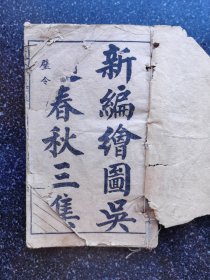 新編繪圖吳
春秋三集